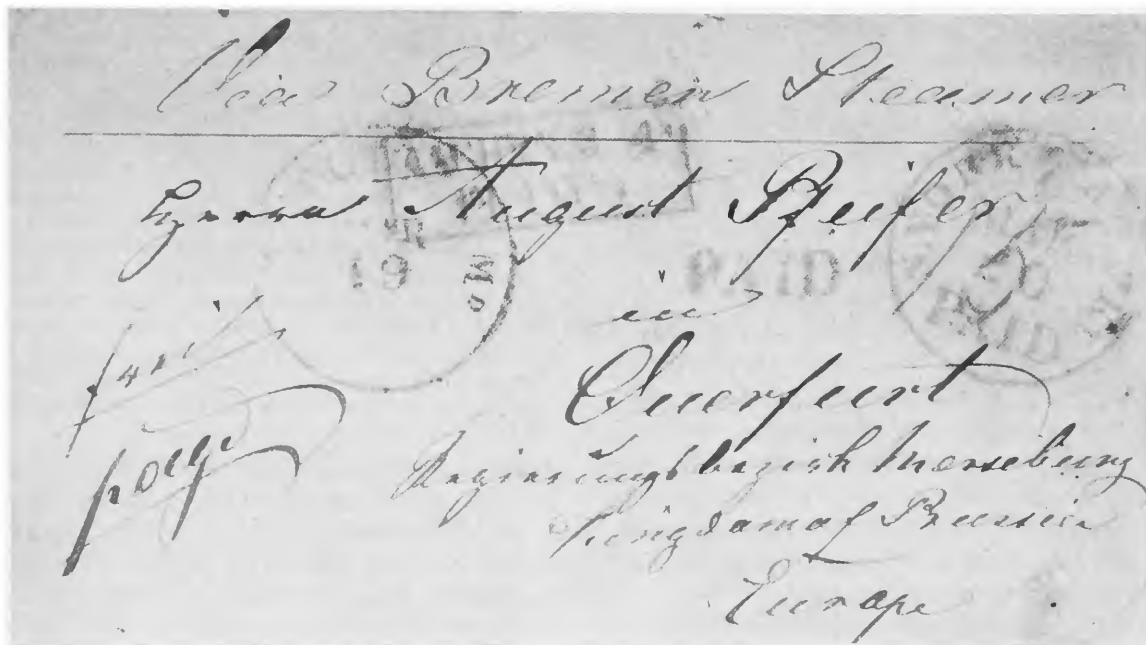 Via Bremen Steamer
Herrn August Pfeifer
in
Querfurt
Regierungsbezirk Merseburg
Kingdom of Prussia
Europe
frei
AMERICA
19
Mo.
PAID
NEW YORK
PAID